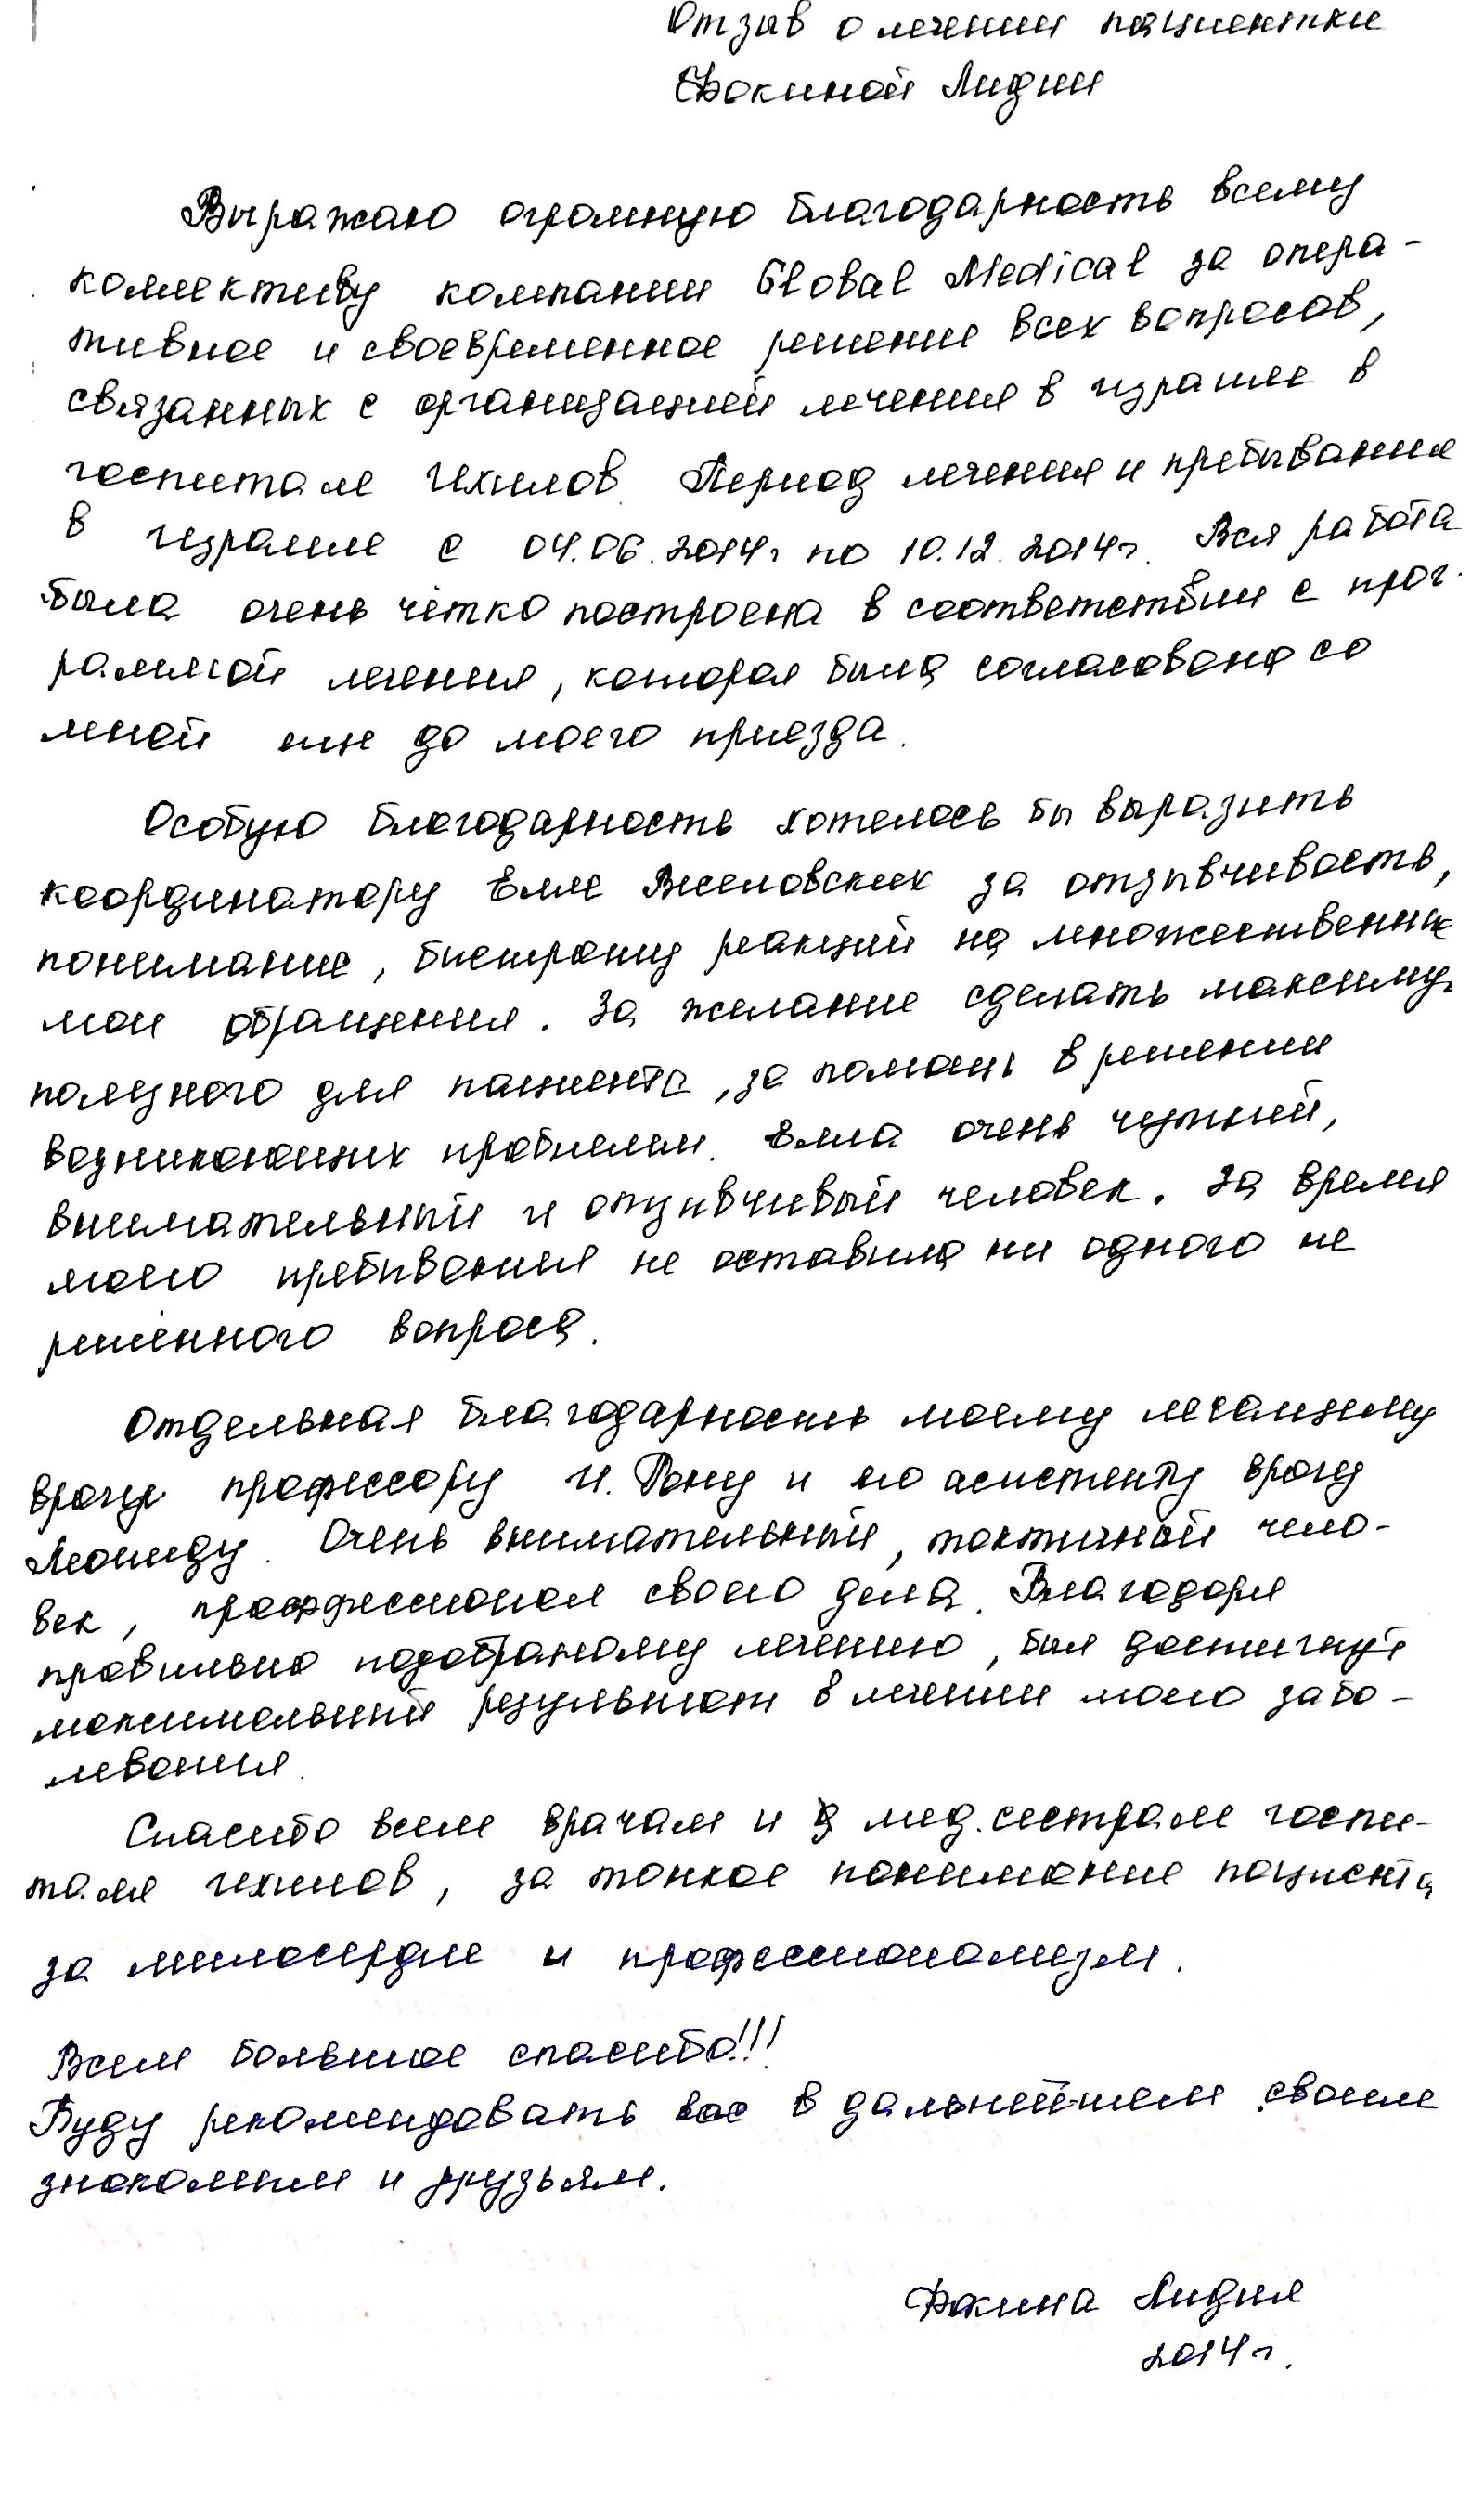 Отзыв о лечении пациентки
Фокиной Лидии
Выражаю огромную благодарность всему
коллективу компании Global Medical за опера-
тивное и своевременное решение всех вопросов,
связанных с организацией лечения в израиле в
госпитале ихилов. Период лечения и пребывания
в израиле с 04.06.2014г по 10.12.2014г. Вся работа
была очень чётко построена в соответствии с прог-
раммой лечения, которая была согласована со
мной еще до моего приезда.
Особую благодарность хотелось бы выразить
координатору Элле Веселовских за отзывчивость,
понимание, быстроту реакций на множественные
мои обращения. За желание сделать максимум
полезного для пациента, за помощь в решении
возникающих проблем. Элла очень чуткий,
внимательный и отзывчивый человек. За время
моего пребывания не оставила ни одного не
решённого вопроса.
Отдельная благодарность моему лечащему
врачу профессору И. Рону и его асистенту врачу
Леониду. Очень внимательный, тактичный чело-
век, профессионал своего дела. Благодаря
правильно подобраному лечению, был достигнут
максимальный результат в лечении моего забо-
левания.
Спасибо всем врачам и мед. сестрам госпи-
таля ихилов, за тонкое понимание пациента
за милосердие и профессионализм.
Всем большое спасибо!!!
Буду рекомендовать вас в дальнейшем своим
знакомым и друзьям.
Фокина Лидия
2014г.